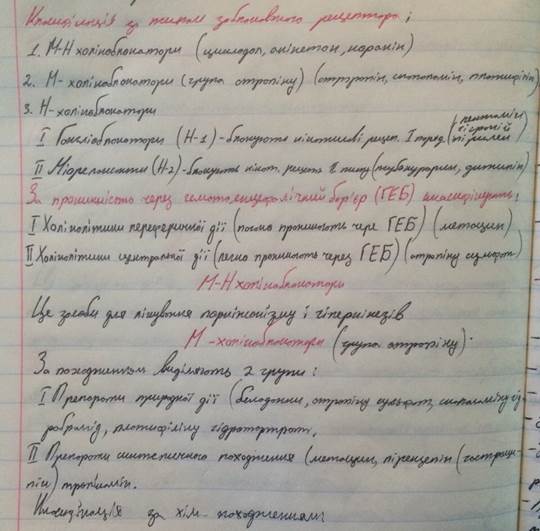 Класифікація за типом заблокованого рецептора:
1. М-Н холіноблокатори (циклодол, акінетон, норакін)
2. М-холіноблокатори (група атропіну) (атропін, скополамін, платифілін)
3. Н-холіноблокатори
І Гангліоблокатори (Н-1) - блокують нікотинові рецеп. І поряд. (пентамін гігроній пірилен)
ІІ Міорелаксанти (Н-2) - блокують нікот. рецепт. ІІ типу (тубокурарин, дитилін)
За проникністю через гематоенцефалічний бар'єр (ГЕБ) класифікують:
І Холінолітики периферичної дії (погано проникають чере ГЕБ) (метацин)
ІІ Холінолітики центральної дії (легко проникають через ГЕБ) (атропіну сульфат)
М-Н холіноблокатори
Це засоби для лікування паркінсонізму і гіперкінезів
М-холіноблокатори (група атропіну).
За походженням виділяють 2 групи:
І Препарати природної дії (беладонни, атропіну сульфат, скополаміну гід
робромід, платифіліну гідротартрат.
ІІ Препарати синтетичного походження (метацин, пірензепін (гастроце-
пін) тропікамін.
Класифікація за хім. походженням: